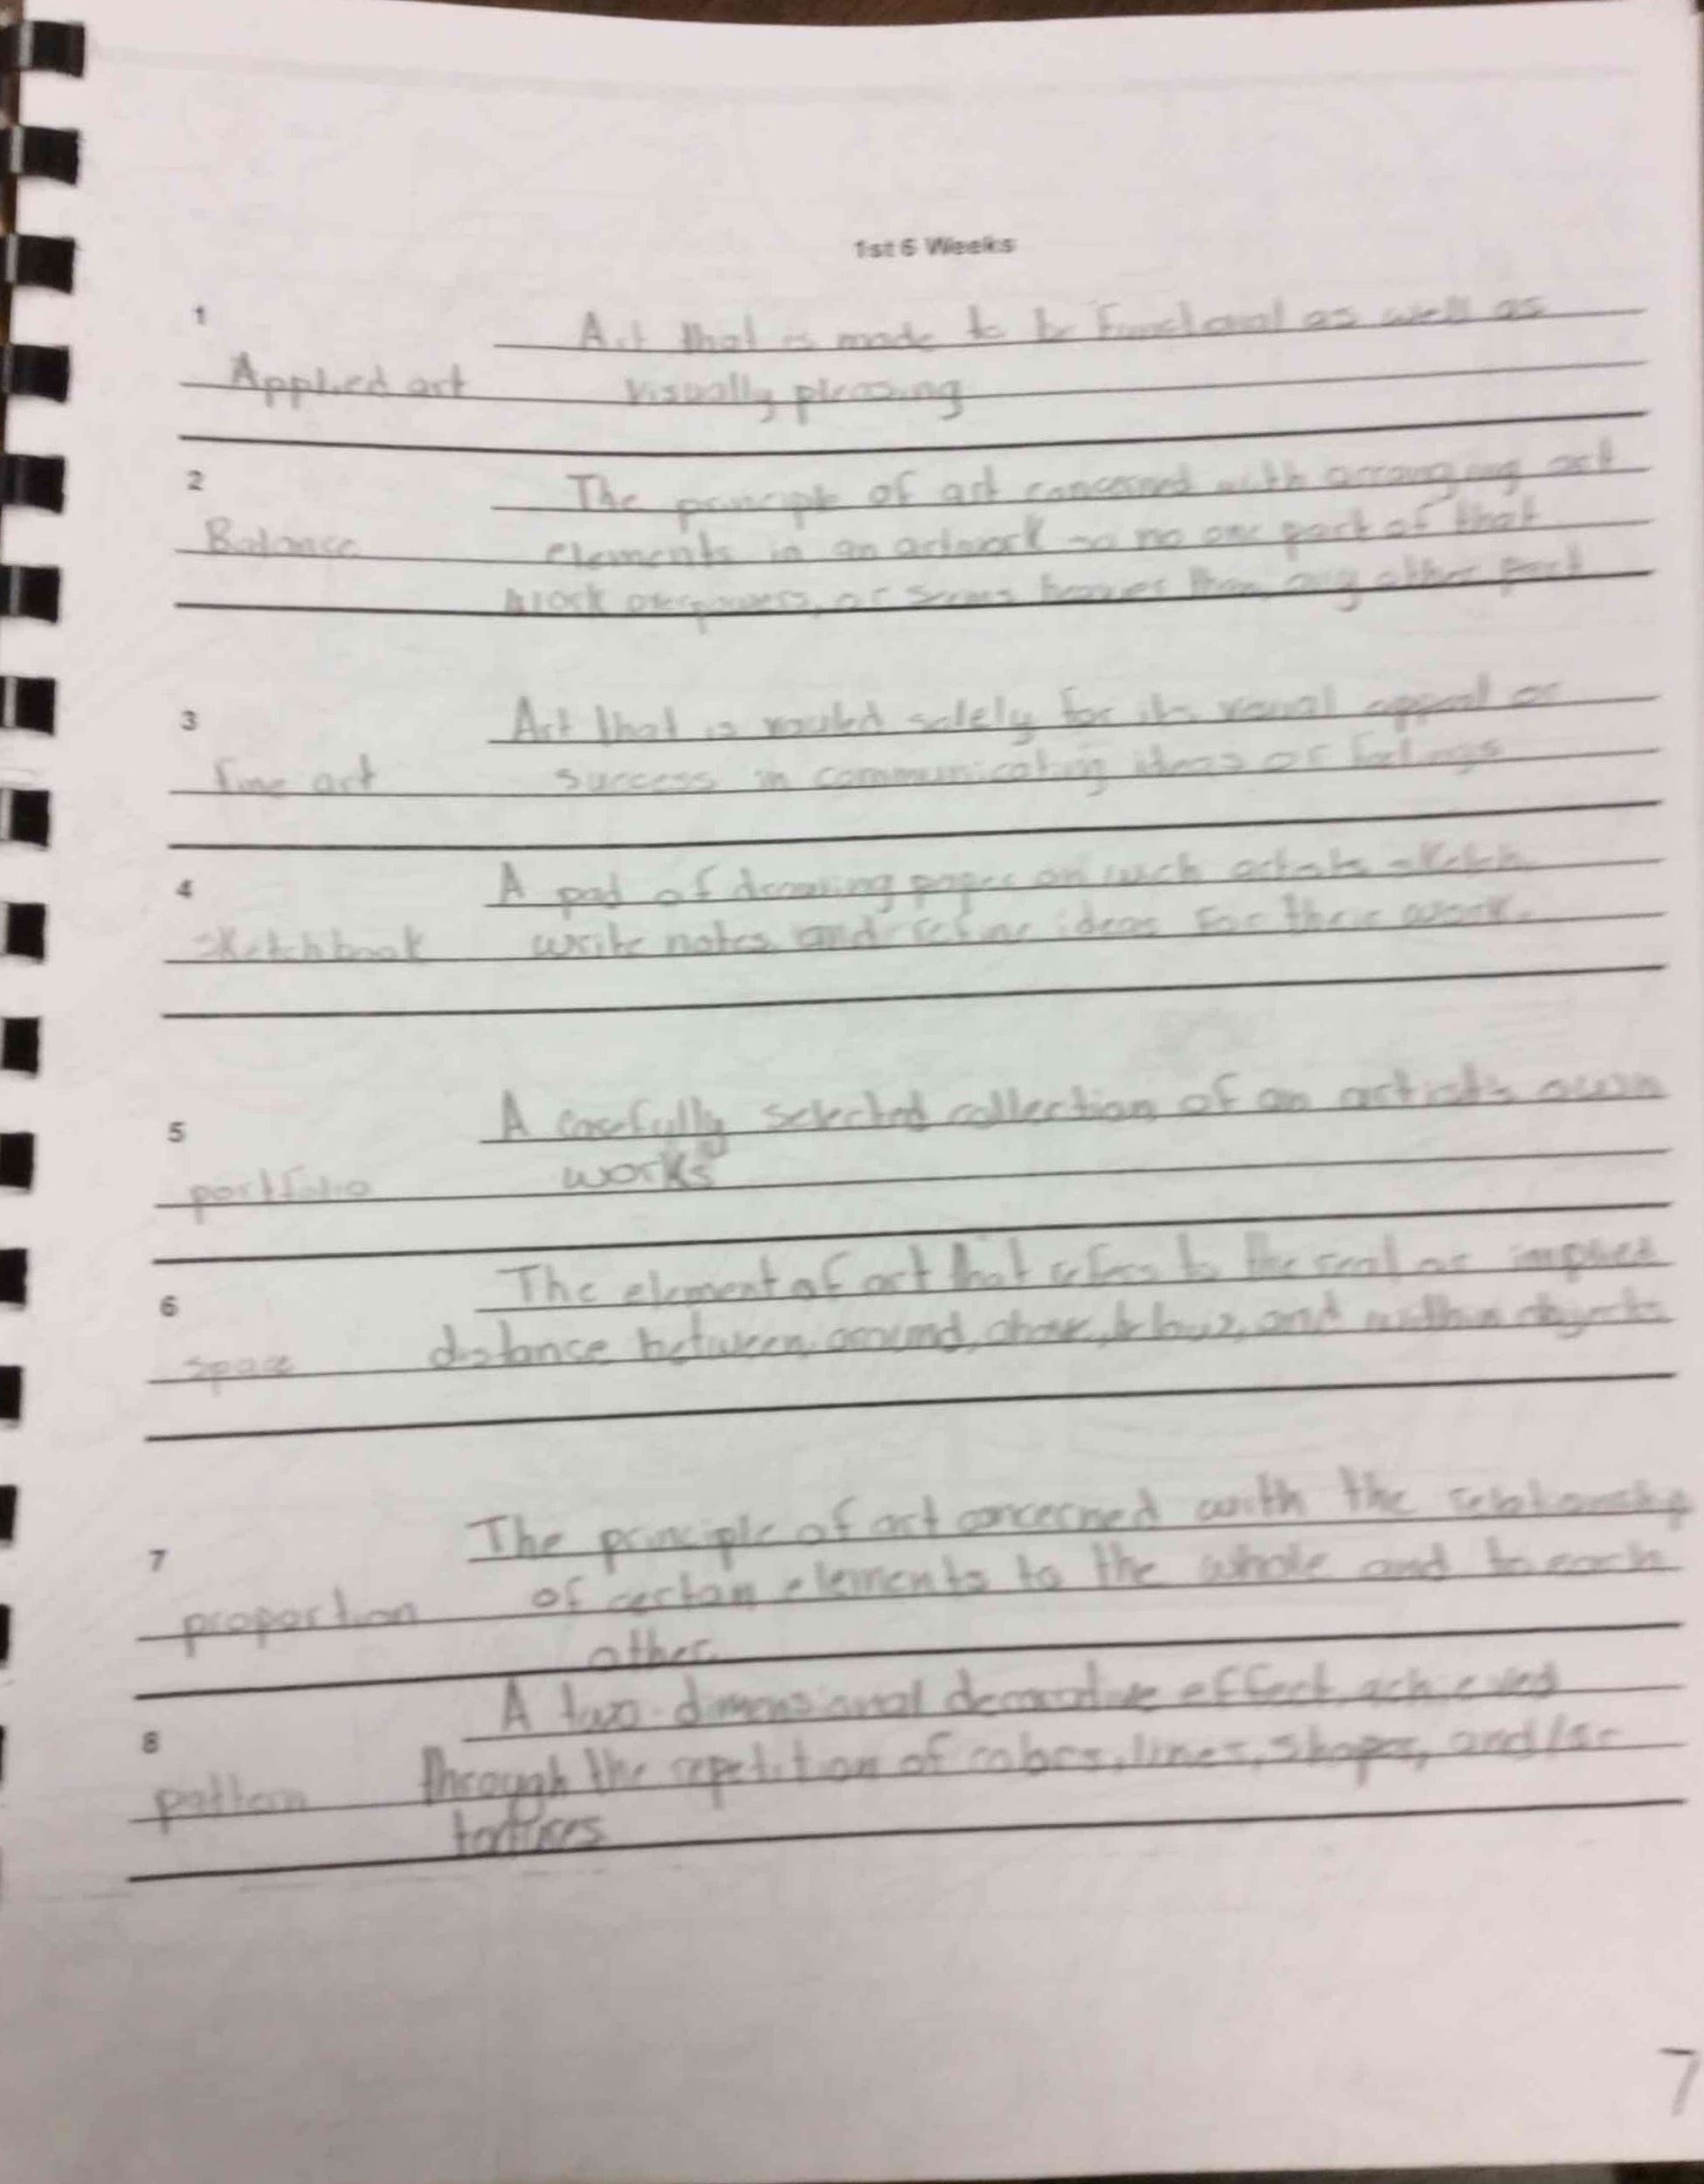 1st 6 Weeks
1 Art that is made to be functional as well as
Applied art visually pleasing
2 The principle of art concerned with arranging art
Balance elements in an artwork so no one part of that
work overpowers, or seems heavier than any other part
3 Art that is valued solely for its visual appeal or
fine art success in communicating ideas or feelings
4 A pad of drawing paper on wich artists sketch,
sketchbook write notes, and refine ideas for their work.
5 A carefully selected collection of an artist's own
portfolio works
6 The element of art that refers to the real or implied
space distance between, around, above, below, and within objects
7 The principle of art concerned with the relationship
proportion of certan elements to the whole and to each
other.
8 A two-dimensional decorative effect achieved
pattern through the repetition of colors, lines, shapes, and/or
textures
7